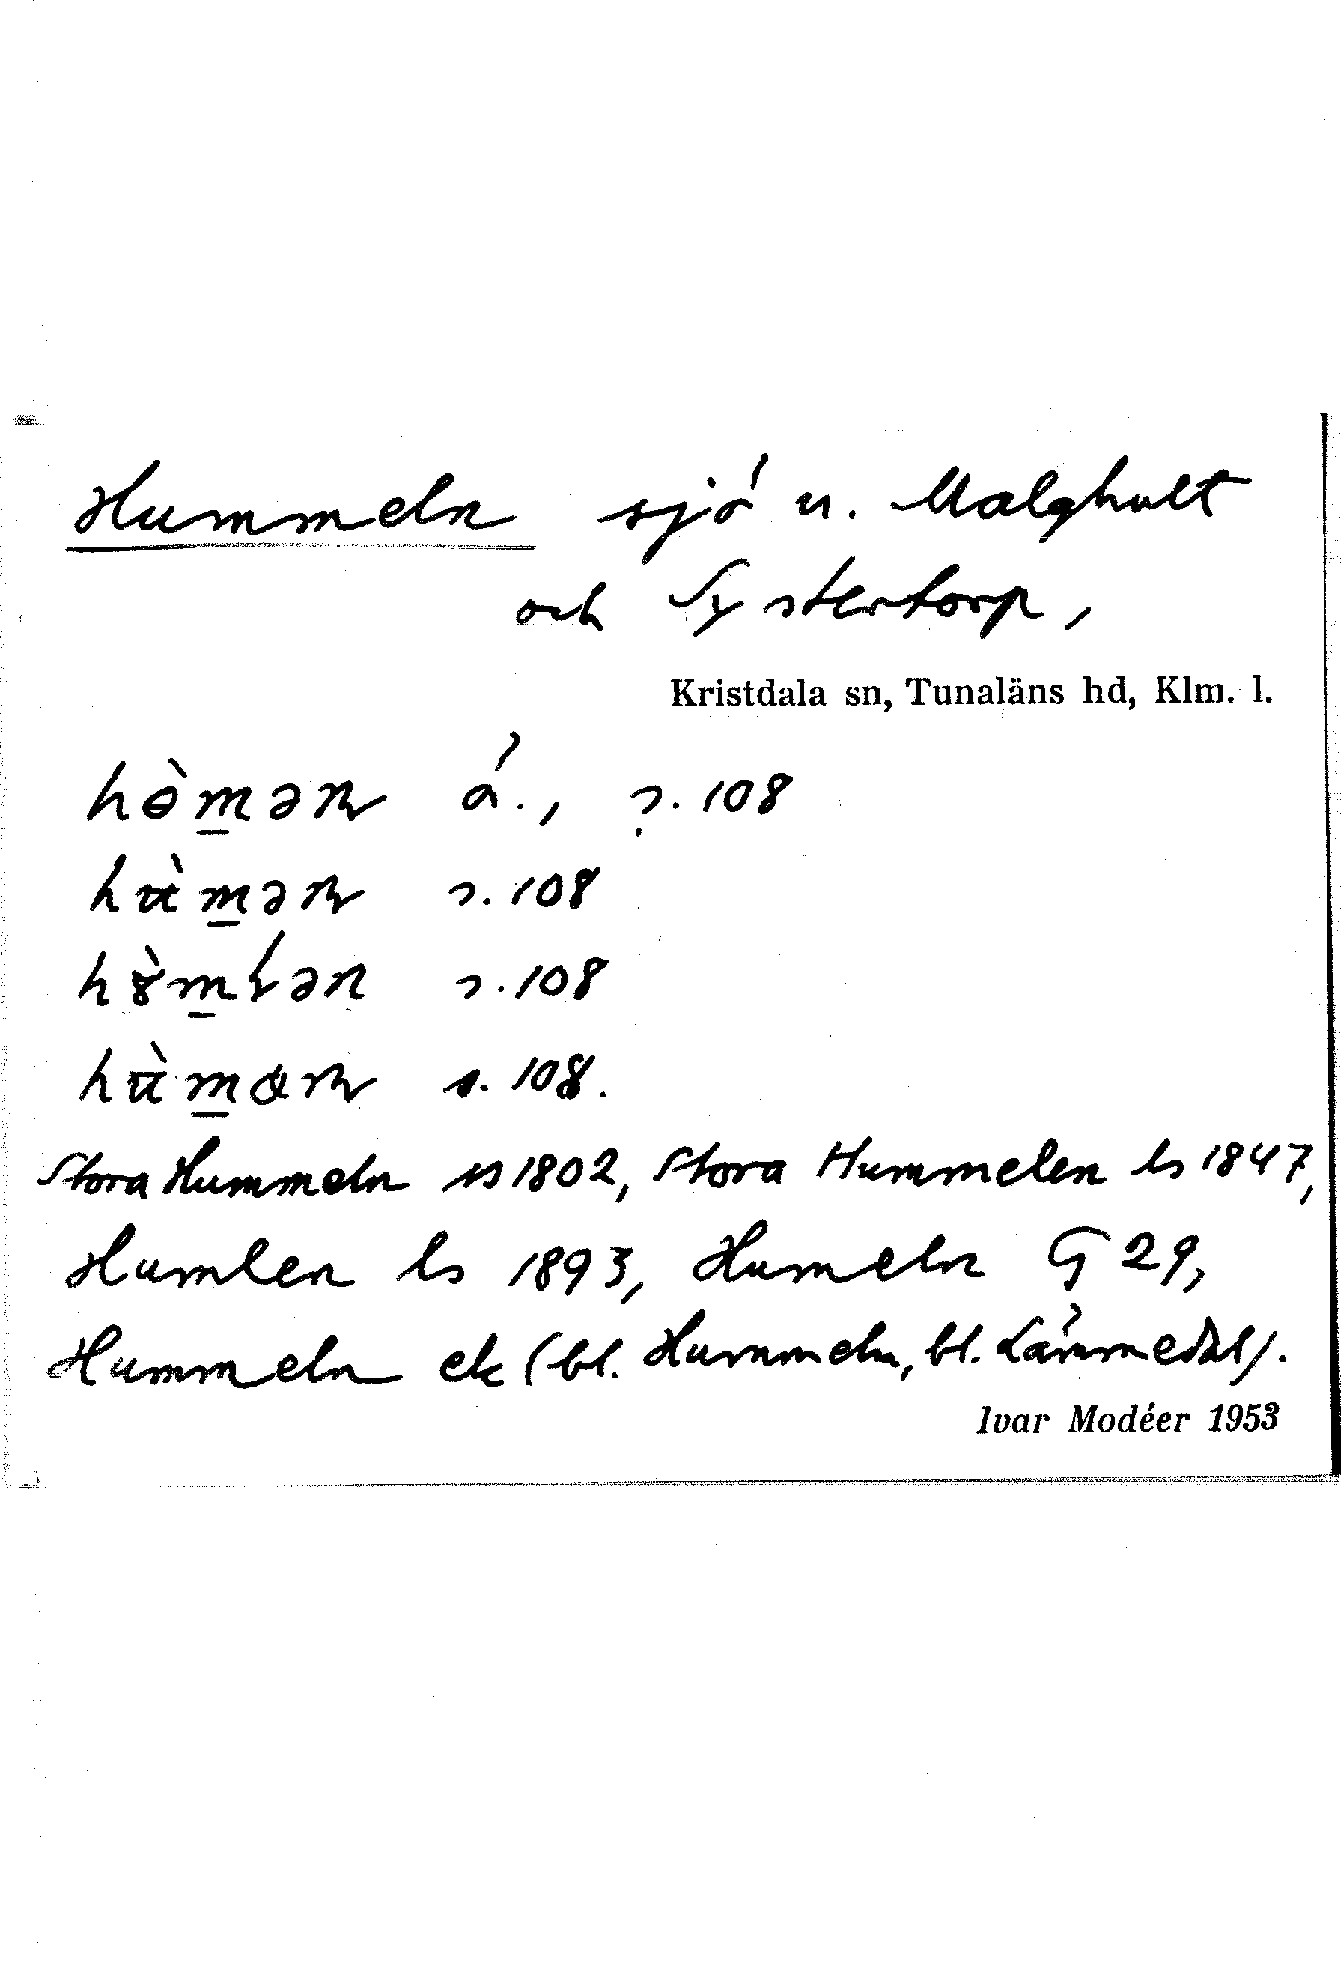 Hummeln sjö u. Malghult
och Systertorp,
Kristdala sn, Tunaläns hd, Klm. l.
hɵ̀m̲ən å., s. 108
m̲ən s. 108
m̲ s. 108
m̲ s. 108.
Stora Hummeln 1802, Stora Hummelen ls 1847,
Humlen ls 1893, Humeln G 29,
Hummeln ek (bl. Hummeln, bl. Lämmedal).
Ivar Modéer 1953